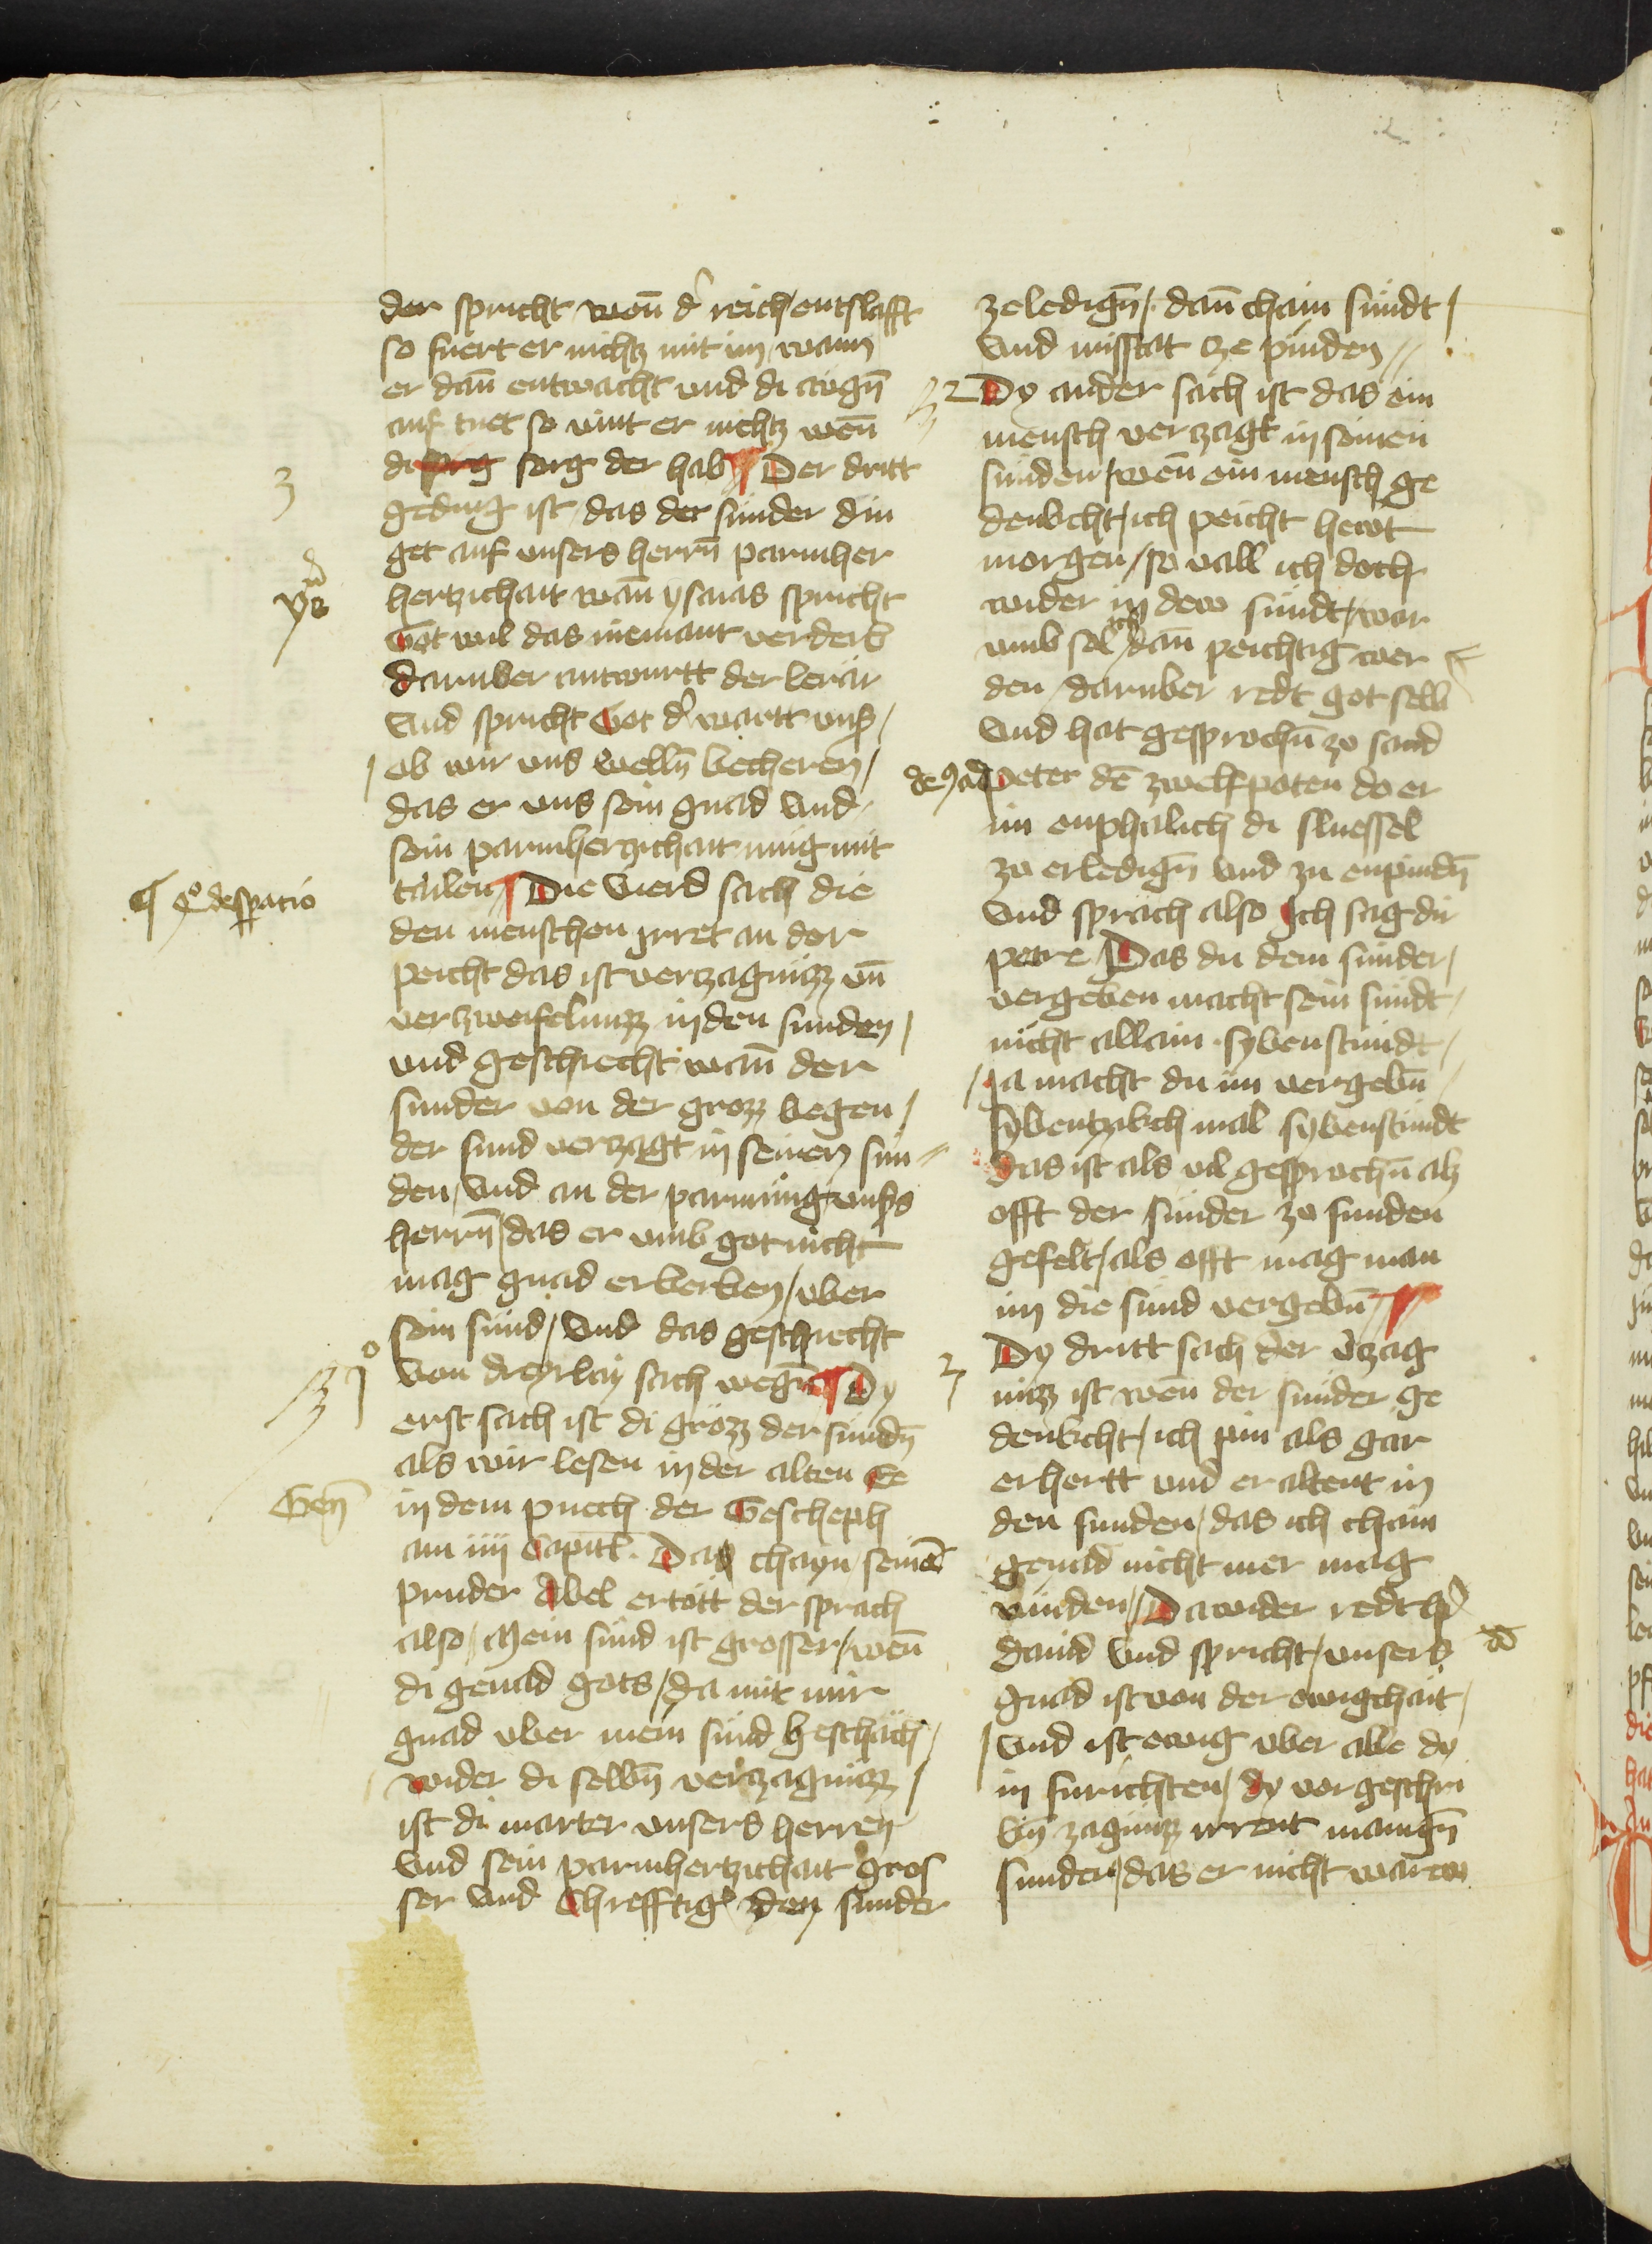 der spricht wen̄ d' reich / entslafft
so fuert er nichtz mit im / wann
er dan̄ entwacht vnd di awgn̄
auf tuet so vint er nichtz wen̄
di sorg sorg der hab // Der dritt
3
geding ist / das der sunder din
get auf vnsers herrn̄ parmher
hertzichait wan̄ ysaias spricht
Got wil das niemant verderb
darvber antwurtt der lerär
Vnd spricht Got d' wartt vns /
ob wir vns welln̄ becheren /
das er vns sein gnad vnd
sein parmherczichait mug mit
tailen // Die vierd sach die
¶ 4º despacio
den menschen yrret an der
peicht das ist verczagnüzz vn̄
verczweifelnuzz in den sunden /
vnd geschiecht wan̄ der
sunder von der grozz wegen /
der sund verczagt in seinen sun
den / vnd an der parmung vnsers
herrn̄ / das er vmb got nicht
mag gnad erberben / vber
sein sünd / Vnd das geschiecht
1º
von dreyrlay sach wegn̄ Dy
erst sach ist di grözz der sundn̄
als wir lesen in der alten Ee
Gen̄
in dem puech der Gescheph
am iiij Capitl . Das chayn seinē
pruder Abel ertött der sprach
also / Mein sünd ist grosser / wen̄
di genad gots / da mit mir
gnad vber mein sünd geschäch /
wider di selbn̄ verczagnüzz /
ist di marter vnsers herren
Vnd sein parmhertzichait gros
ser vnd Chrefftig' den sunder
zeledign̄ / dan̄ chain sündt /
Vnd missetat cze pinden //
2
Dy ander sach ist das ein
mensch verczagt in seinen
sünden / wen̄ ein mensch ge
denkcht / ich peicht hewt
morgen / so vall ich doch
wider in dew sündt / war
vmb sol ich dan̄ peichtig wer
den / darvber redt got selb
Vnd hat gesprochn̄ zo sand
peter dē zwelfpoten do er
im enphalich di sluessel
zo erledign̄ vnd zu enpindn̄
Vnd sprach also Ich sag dir
petre Das du dem sünder /
vergeben macht sein sündt /
nicht allain sybenstündt /
Ja macht du im vergebn̄
Sybentzikch mal sybenstündt
das ist als vil gesprochn̄ alz
offt der sünder zo sunden
gefelt / als offt mag man
im die sünd vergebn̄ //
3
Dy dritt sach der v'czag
nüzz ist wen̄ der sünder ge
denkcht / ich pin als gar
erhertt vnd er altent in
den sunden / das ich chain
genad nicht mer mag
vinden // Dawider redt h'
dauid Vnd spricht / vnsers
gnad ist von der ewigchait /
Vnd ist ewig vber alle dy
in furichsten / dy vorgeschri
bn̄ zagnüzz irrent manign̄
sunder / das er nicht warew